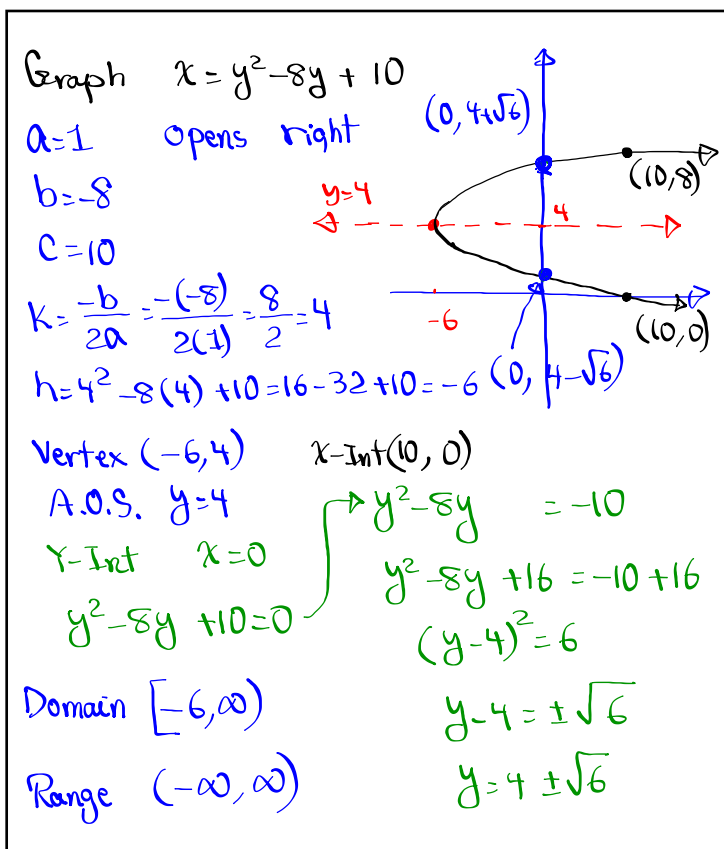 Graph x = y² - 8y + 10
a=1 opens right
b=-8
c=10
k = -b/2a = -(-8)/2(1) = 8/2 = 4
h = 4² - 8(4) + 10 = 16 - 32 + 10 = -6
(0, 4+√6)
(10,8)
y=4
4
-6
(10,0)
(0, 4-√6)
Vertex (-6,4) X-Int (10, 0)
A.O.S. y=4
Y-Int x=0
y² - 8y + 10 = 0
y² - 8y = -10
y² - 8y + 16 = -10 + 16
(y-4)² = 6
y-4 = ±√6
y = 4 ±√6
Domain [-6,∞)
Range (-∞, ∞)